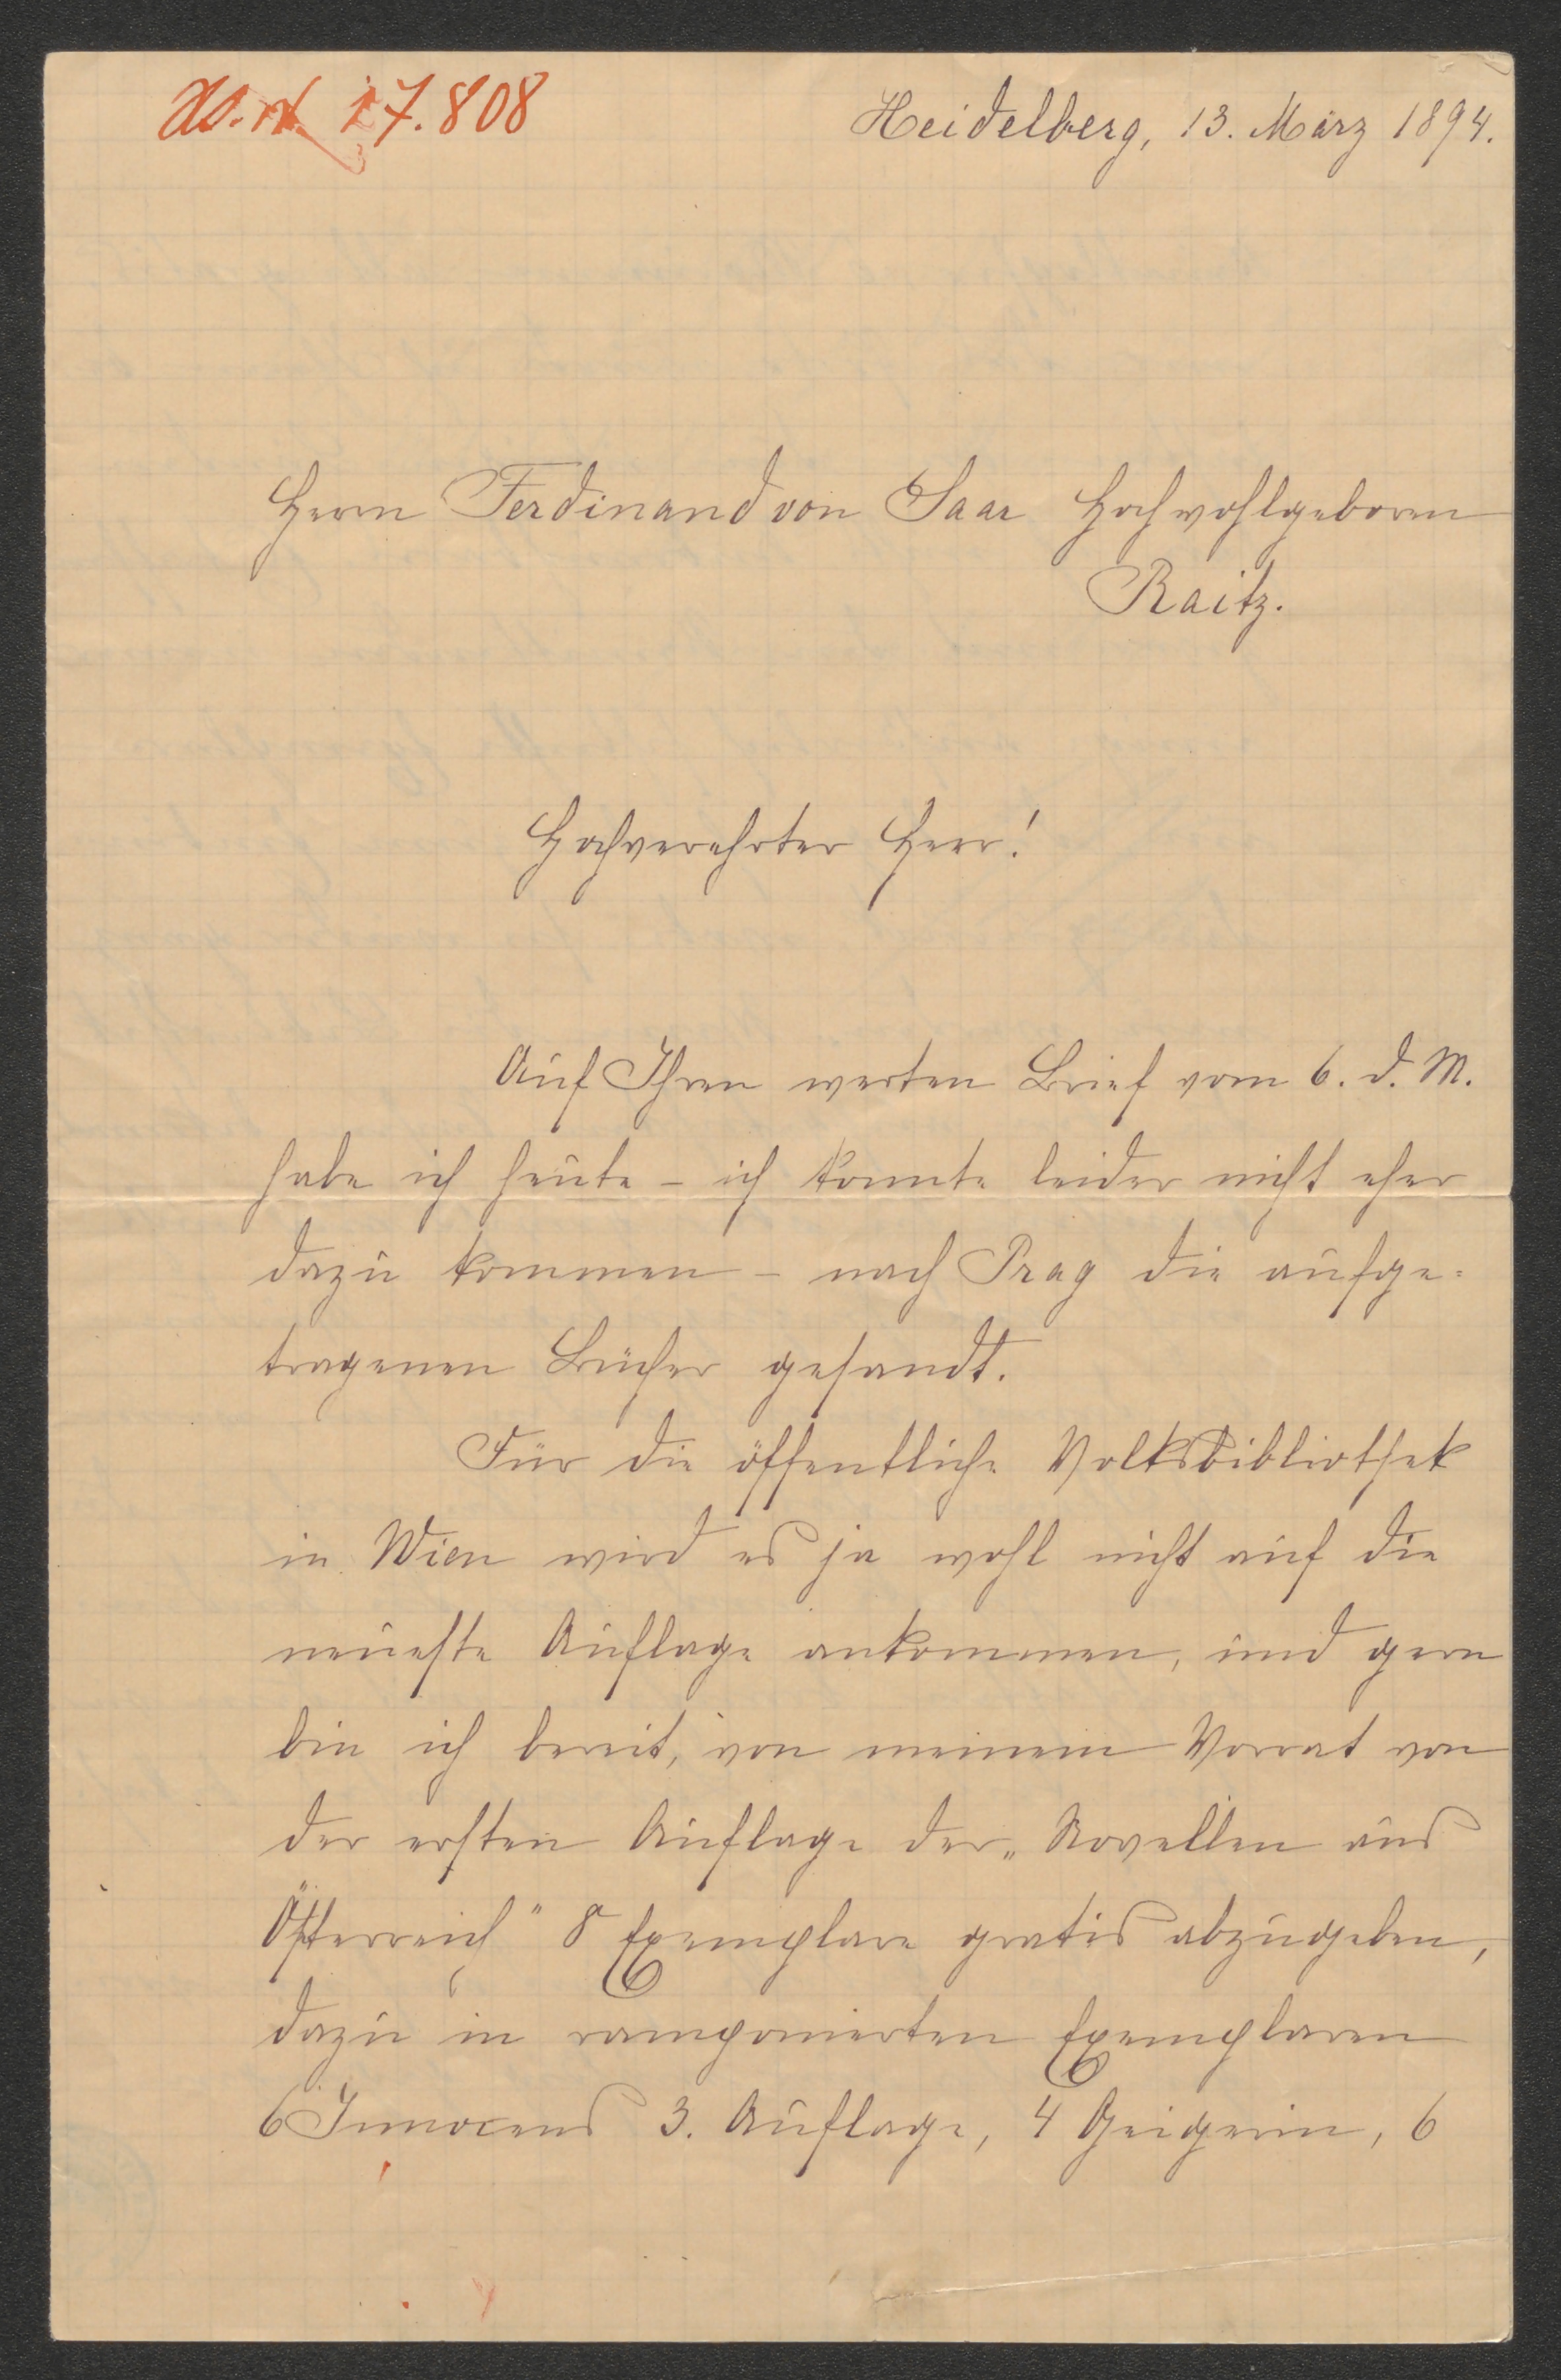 27.808
Heidelberg, 13. März 1894.
Herrn Ferdinand von Saar Hochwohlgeboren
Raitz.
Hochverehrter Herr!
Auf Ihren werten Brief vom 6. d. M.
habe ich heute – ich konnte leider nicht eher
dazu kommen – nach Prag die aufge-
tragenen Bücher gesandt.
Für die öffentliche Volksbibliothek
in Wien wird es ja wohl nicht auf die
neueste Auflage ankommen, und gern
bin ich bereit, von meinem Vorrat von
der ersten Auflage der „Novellen aus
Österreich" 8 Exemplare gratis abzugeben,
dazu in ramponierten Exemplaren
6 Innocens 3. Auflage, 4 Geigerin, 6